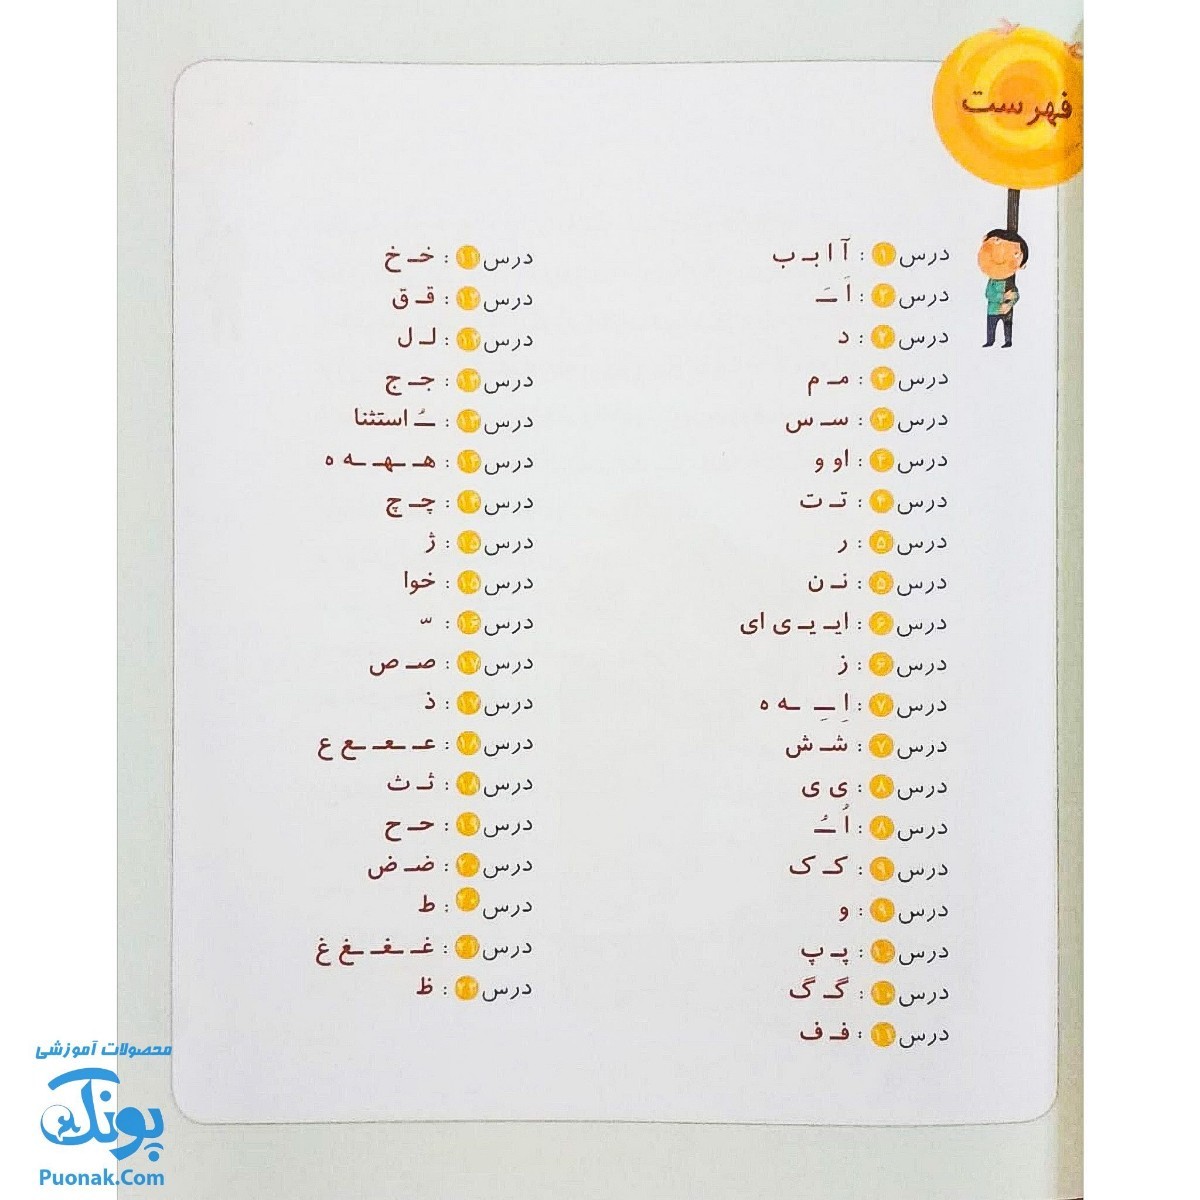 فهرست
درس ۱ : آ ا بـ ب
درس ۲ : اَ ـَ
درس ۲ : د
درس ۳ : مـ م
درس ۳ : سـ س
درس ۴ : او و
درس ۴ : تـ ت
درس ۵ : ر
درس ۵ : نـ ن
درس ۶ : ایـ یـ ی ای
درس ۶ : ز
درس ۷ : اِ ـِ ـه ه
درس ۷ : شـ ش
درس ۸ : ی ی
درس ۸ : اُ ـُ
درس ۹ : کـ ک
درس ۹ : و
درس ۱۰ : پـ پ
درس ۱۰ : گـ گ
درس ۱۱ : فـ ف
درس ۱۱ : خـ خ
درس ۱۲ : قـ ق
درس ۱۲ : لـ ل
درس ۱۳ : جـ ج
درس ۱۳ : ـُ استثنا
درس ۱۴ : هـ ـهـ ـه ه
درس ۱۴ : چـ چ
درس ۱۵ : ژ
درس ۱۵ : خوا
درس ۱۶ : ّ
درس ۱۷ : صـ ص
درس ۱۷ : ذ
درس ۱۸ : عـ ـعـ ـع ع
درس ۱۸ : ثـ ث
درس ۱۹ : حـ ح
درس ۲۰ : ضـ ض
درس ۲۰ : ط
درس ۲۱ : غـ ـغـ ـغ غ
درس ۲۲ : ظ
محصولات آموزشی
پونک
Puonak.Com